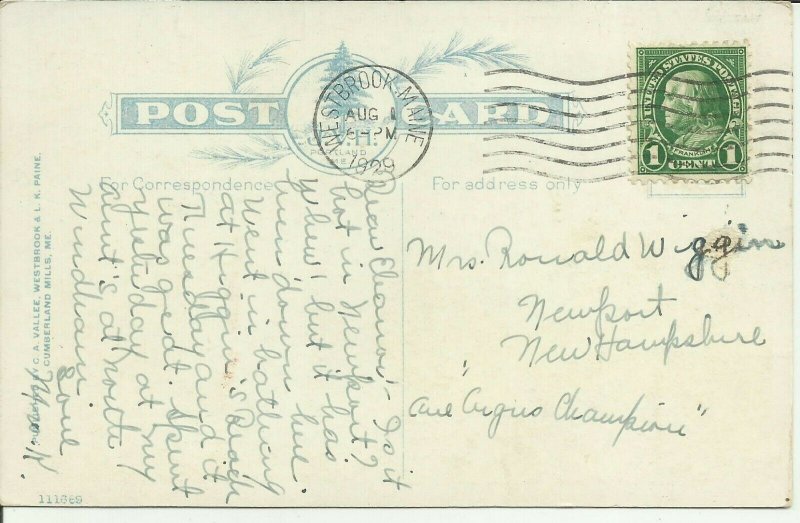 POST CARD
J.S.H.
PORTLAND
ME.
WESTBROOK, MAINE
AUG 1
6-PM
1929
UNITED STATES POSTAGE
FRANKLIN
1 CENT 1
For Correspondence
For address only
Dear Eleanor - Is it
hot in Newport?
Whew! but it has
been down here.
Went in bathing
at Higgin's Beach
Tuesday and it
was great. Spent
yesterday at my
aunt's at North
Windham.
Love
Mrs. Ronald Wiggin
Newport
New Hampshire
"Care Argus Champion"
C. A. VALLEE, WESTBROOK & L. K. PAINE,
CUMBERLAND MILLS, ME.
111669